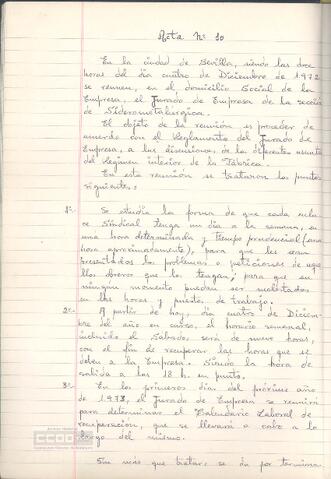 Acta Nº 10
En la ciudad de Sevilla, siendo las doce
horas del día cuatro de Diciembre de 1972
se reunen, en el domicilio Social de la
Empresa, el Jurado de Empresa de la sección
de Siderometalúrgica.
El objeto de la reunión es proceder de
acuerdo con el Reglamento del Jurado de
Empresa, a las discusiones, de los diferentes asuntos
del Regimen interior de la Fábrica.
En esta reunión se trataron los puntos
siguientes:
1º- Se estudia la forma de que cada enla-
ce Sindical tenga un día a la semana, en
una hora determinada y tiempo prudencial (una
hora aproximadamente), para que les sean
presentados los problemas o peticiones de aque-
llos obreros que la tengan, para que en
ningún momento puedan ser molestados
en las horas y puesto, de trabajo.
2º- A partir de hoy, día cuatro de Diciem-
bre del año en curso, el horario semanal,
incluido el Sabado, será de nueve horas,
con el fin de recuperar las horas que se
deben a la Empresa. Siendo la hora de
salida a las 18 h. en punto.
3º- En los primeros días del próximo año
de 1973, el Jurado de Empresa se reunirá
para determinar el Calendario Laboral de
recuperación, que se llevará a cabo a lo
largo del mismo.
Sin más que tratar, se da por terminada
CCOO